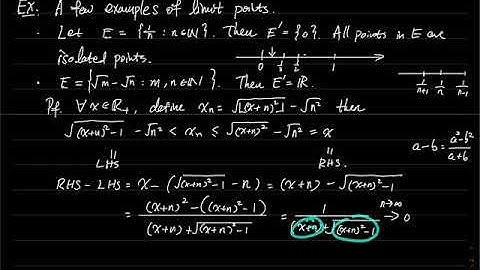 Ex. A few examples of limit points.
· Let E = {1/n : n∈ℕ}. Then E' = {0}. All points in E are
isolated points.
0 1/3 1/2 1
· E = {√m − √n : m, n ∈ ℕ}. Then E' = ℝ.
1/(n+1) 1/n 1/(n-1)
Pf. ∀ x∈ℝ₊, define xₙ = √[(x+n)²] − √n² then
√((x+n)²−1) − √n² < xₙ ≤ √(x+n)² − √n² = x
a−b = (a²−b²)/(a+b)
|| ||
LHS RHS.
RHS − LHS = x − (√((x+n)²−1) − n) = (x+n) − √((x+n)²−1)
= ((x+n)² − ((x+n)²−1))/((x+n) + √((x+n)²−1)) = 1/((x+n) + √((x+n)²−1)) →(n→∞) 0